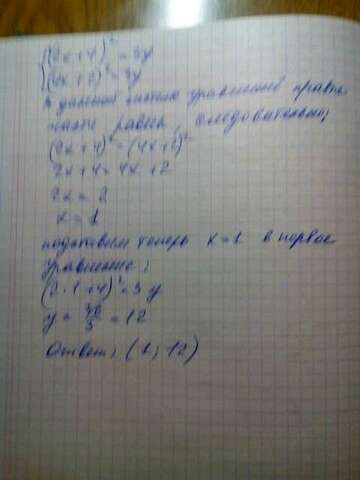 {(2x+4)² = 3y
{(4x+2)² = 3y
В данной системе уравнений правые
части равны, следовательно;
(2x+4)² = (4x+2)²
2x+4 = 4x+2
2x = 2
x = 1
подставим теперь x=1 в первое
уравнение:
(2·1+4)² = 3y
y = 36/3 = 12
Ответ: (1; 12)